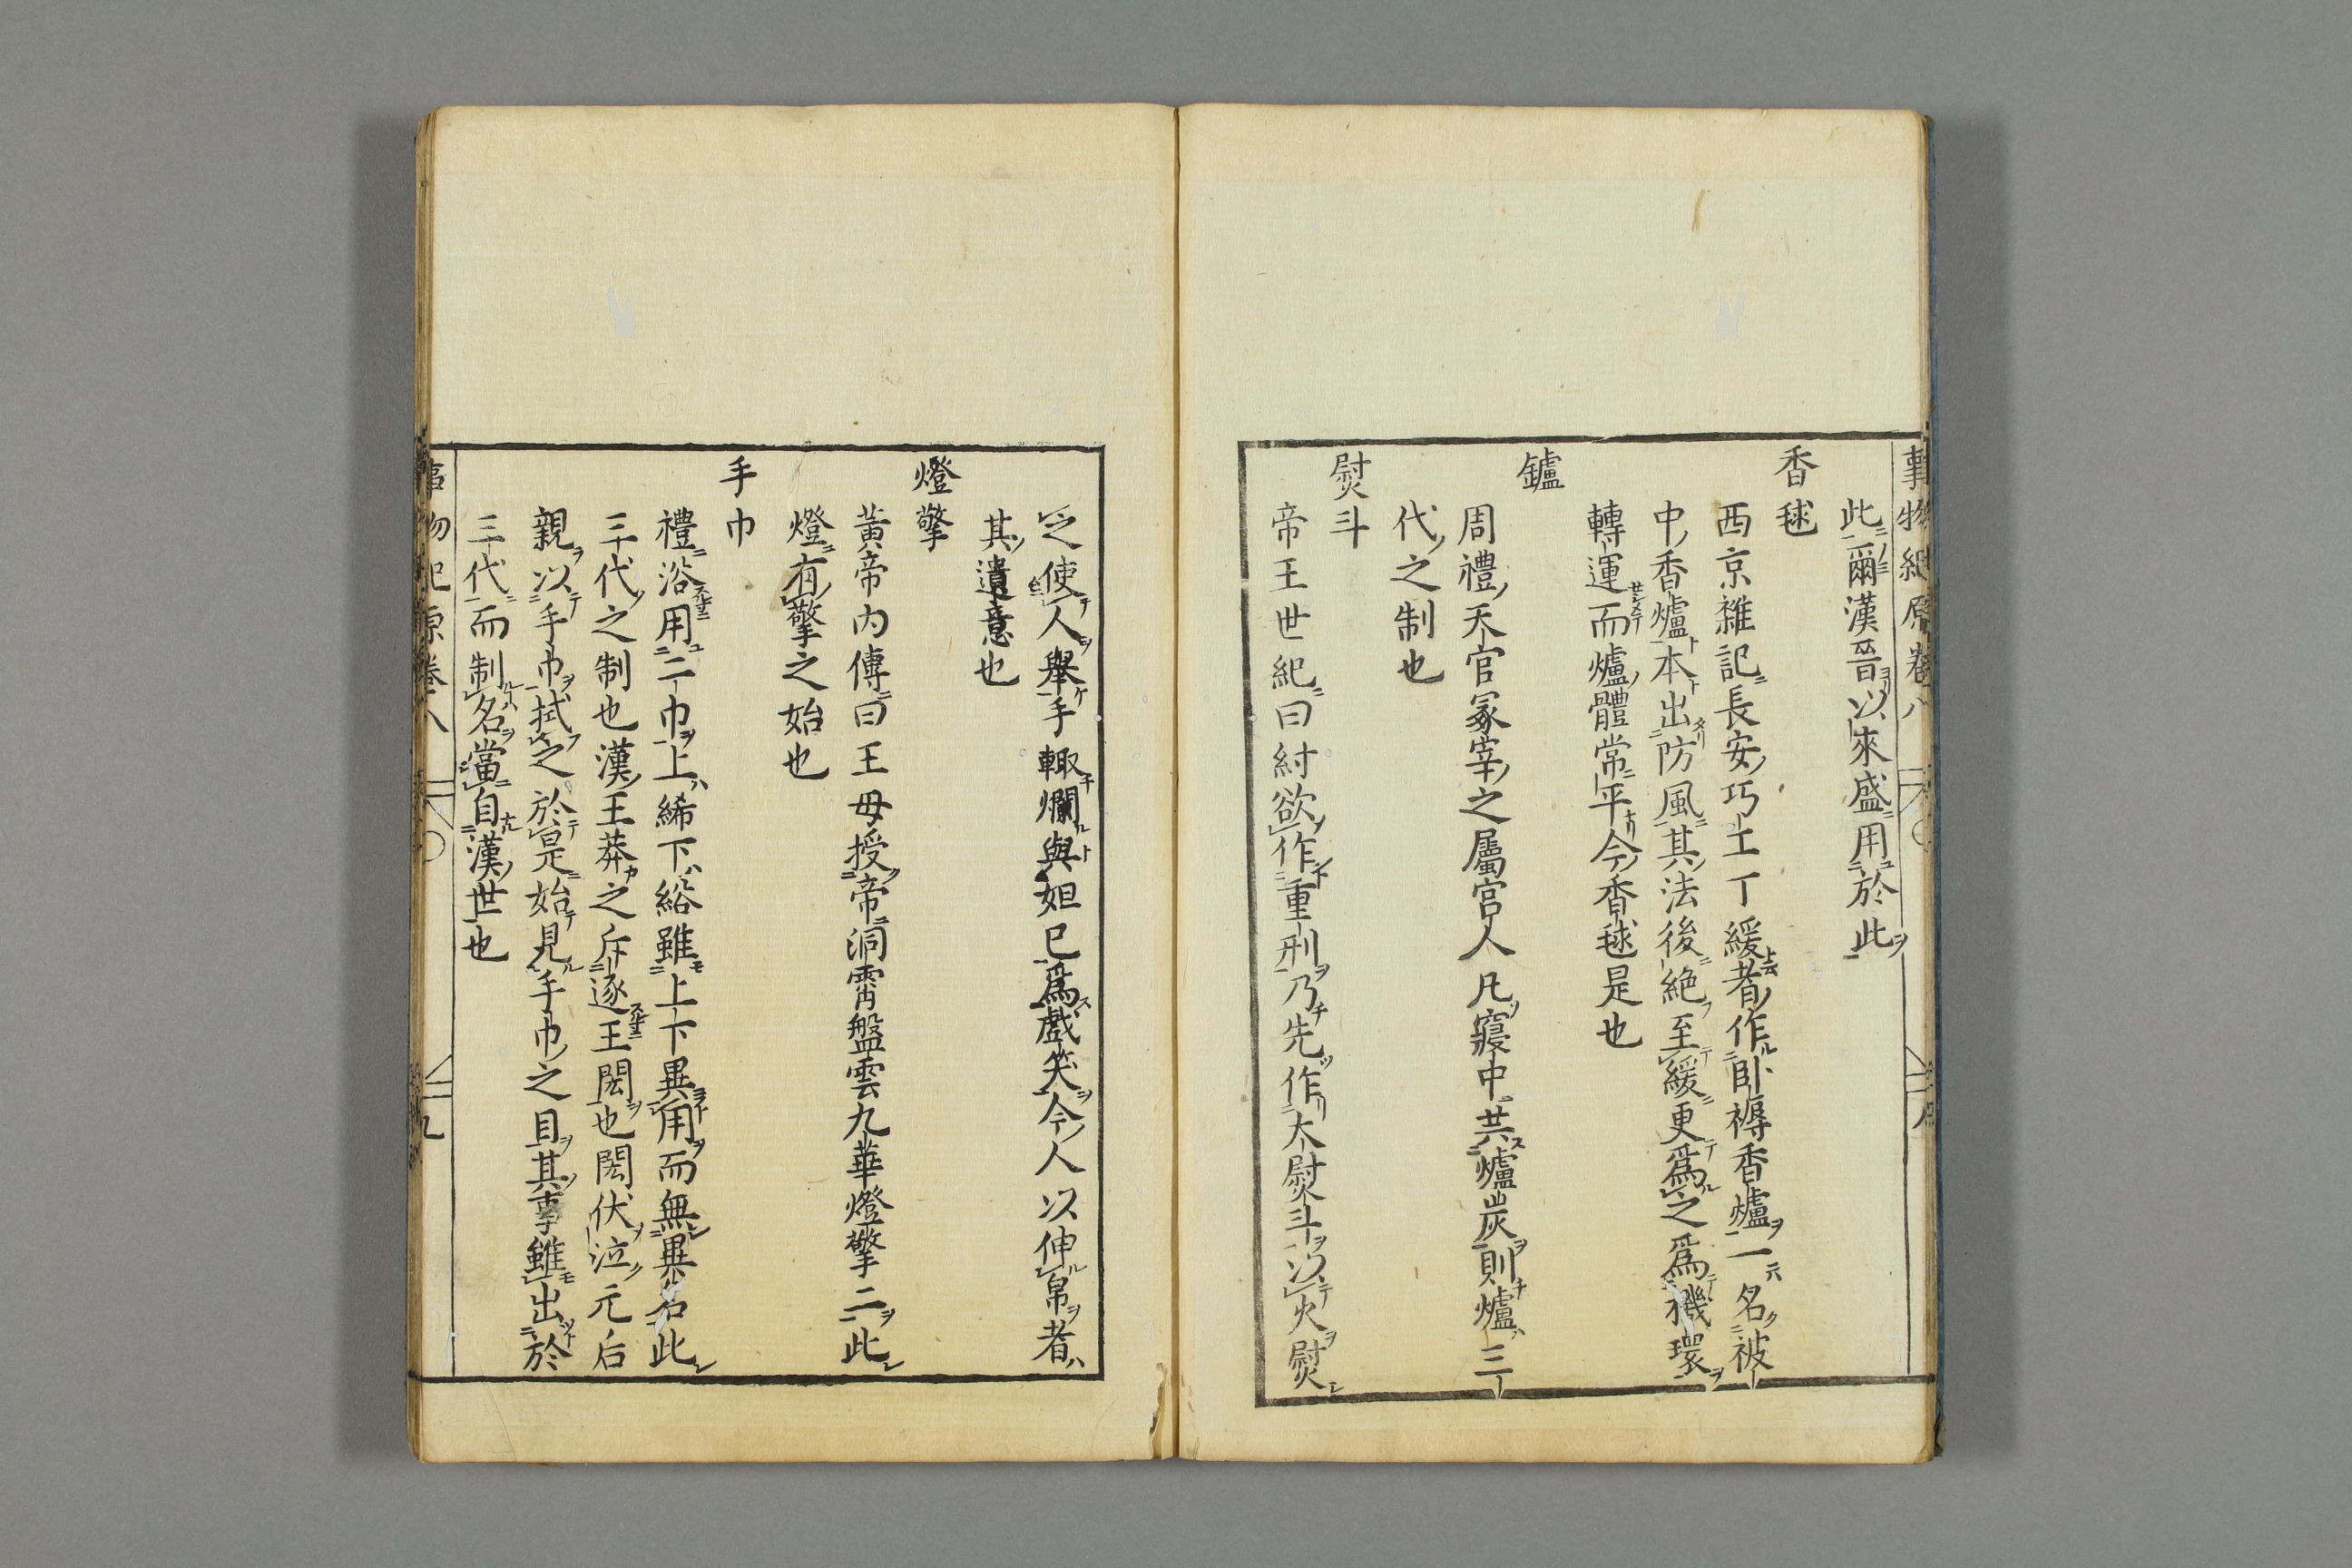 事物紀原卷八
此爾漢晉以來盛用於此
香毬
西京雜記長安巧工丁緩者作卧褥香爐一名被
中香爐本出防風其法後絶至緩更爲之爲機環
轉運而爐體常平今香毬是也
鑪
周禮天官冢宰之屬宮人凡寢中共爐炭則爐三
代之制也
熨斗
帝王世紀曰紂欲作重刑乃先作大熨斗以火熨
之使人舉手輙爛與妲已爲戲笑今人以伸帛者
其遺意也
燈擎
黃帝内傳曰王母授帝洞霄盤雲九華燈擎二此
燈有擎之始也
手巾
禮浴用二巾上絺下綌雖上下異用而無異名此
三代之制也漢王莽之斥逐王閎也閎伏泣元后
親以手巾拭之於是始見手巾之目其事雖出於
三代而制名當自漢世也
事物紀原卷八
九